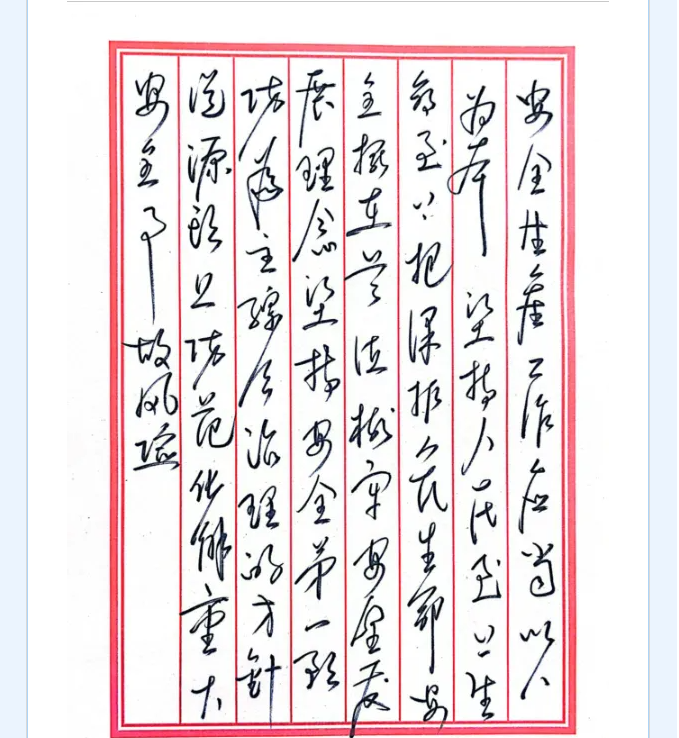 安全生産工作應当以人
为本 堅持人民至上生
命至上把保护人民生命安
全擺在首位樹牢安全发
展理念堅持安全第一預
防為主綜合治理的方針
從源頭上防范化解重大
安全事故风险